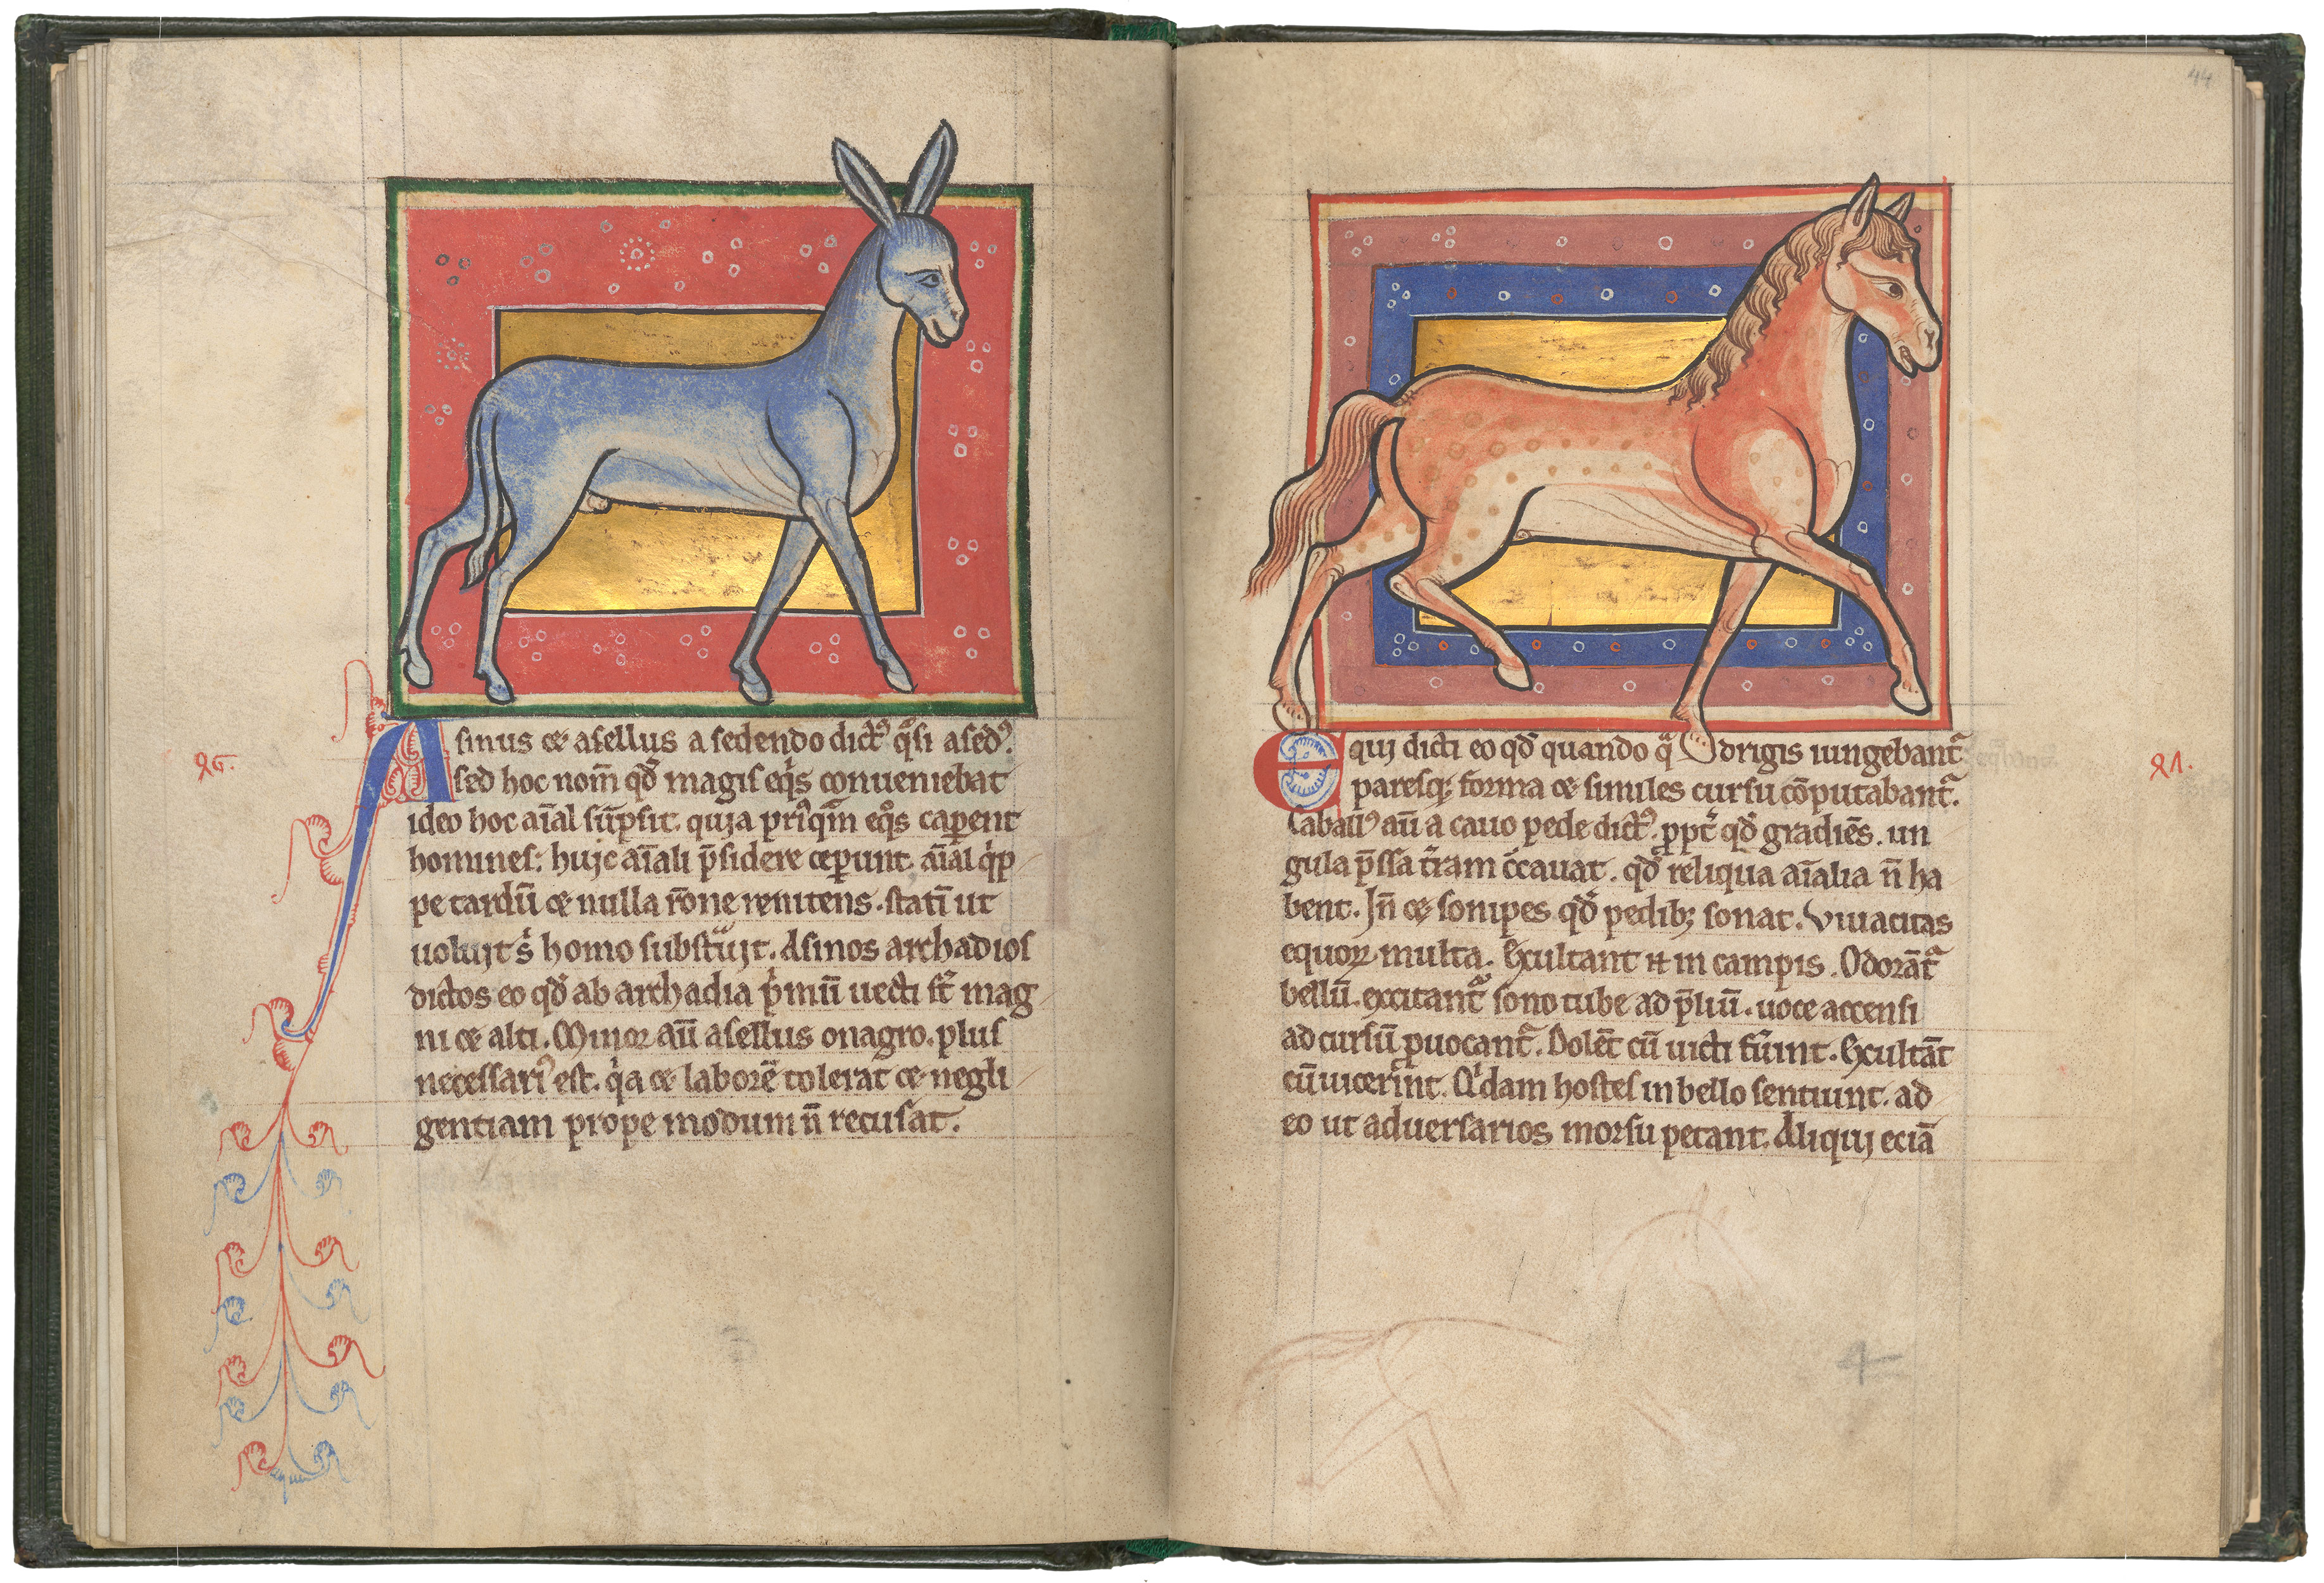 Asinus ⁊ asellus a sedendo dict᷒ qͣsi ased᷒.
sed hoc nom̄ qd̓ magis eqͥs conueniebat
ideo hoc aīal sūpsit. quia priͥqᷓm eqͦs caꝑent
homines: huic aīali p̄sidere ceꝑunt. aīal qͥp
pe tardū ⁊ nulla r̄one renitens. statī ut
uoluit s͛ homo substͣuit. Asinos archadios
dictos eo qd̓ ab archadia pͥmū uecti st̄ mag
ni ⁊ alti. Minor aū asellus onagro. plus
necessari᷒ est. qͥa ⁊ laborē tolerat ⁊ negli
gentiam prope modum n̄ recusat.
44
Equi dicti eo qd̓ quando qͣdrigis iungebant᷑
paresqꝫ forma ⁊ similes cursu cōputabant᷑.
Caball᷒ aū a cauo pede dict᷒. ꝓpt͛ qd̓ gradiēs. un
gula p̄ssa t͛ram c̄cauat. qd̓ reliqua aīalia n̄ ha
bent. Jn̄ ⁊ sonipes qd̓ pedibꝫ sonat. Viuacitas
equoꝝ multa. Exultant n̄ in campis. Odorāt᷑
bellū. excitant᷑ sono tube ad p̄liū. uoce accensi
ad cursū ꝓuocant᷑. Dolēt cū uicti fu͛int. Exultāt
cū uicerint. Qͥdam hostes in bello sentiunt. ad
eo ut aduersarios morsu petant. Aliqui eciā